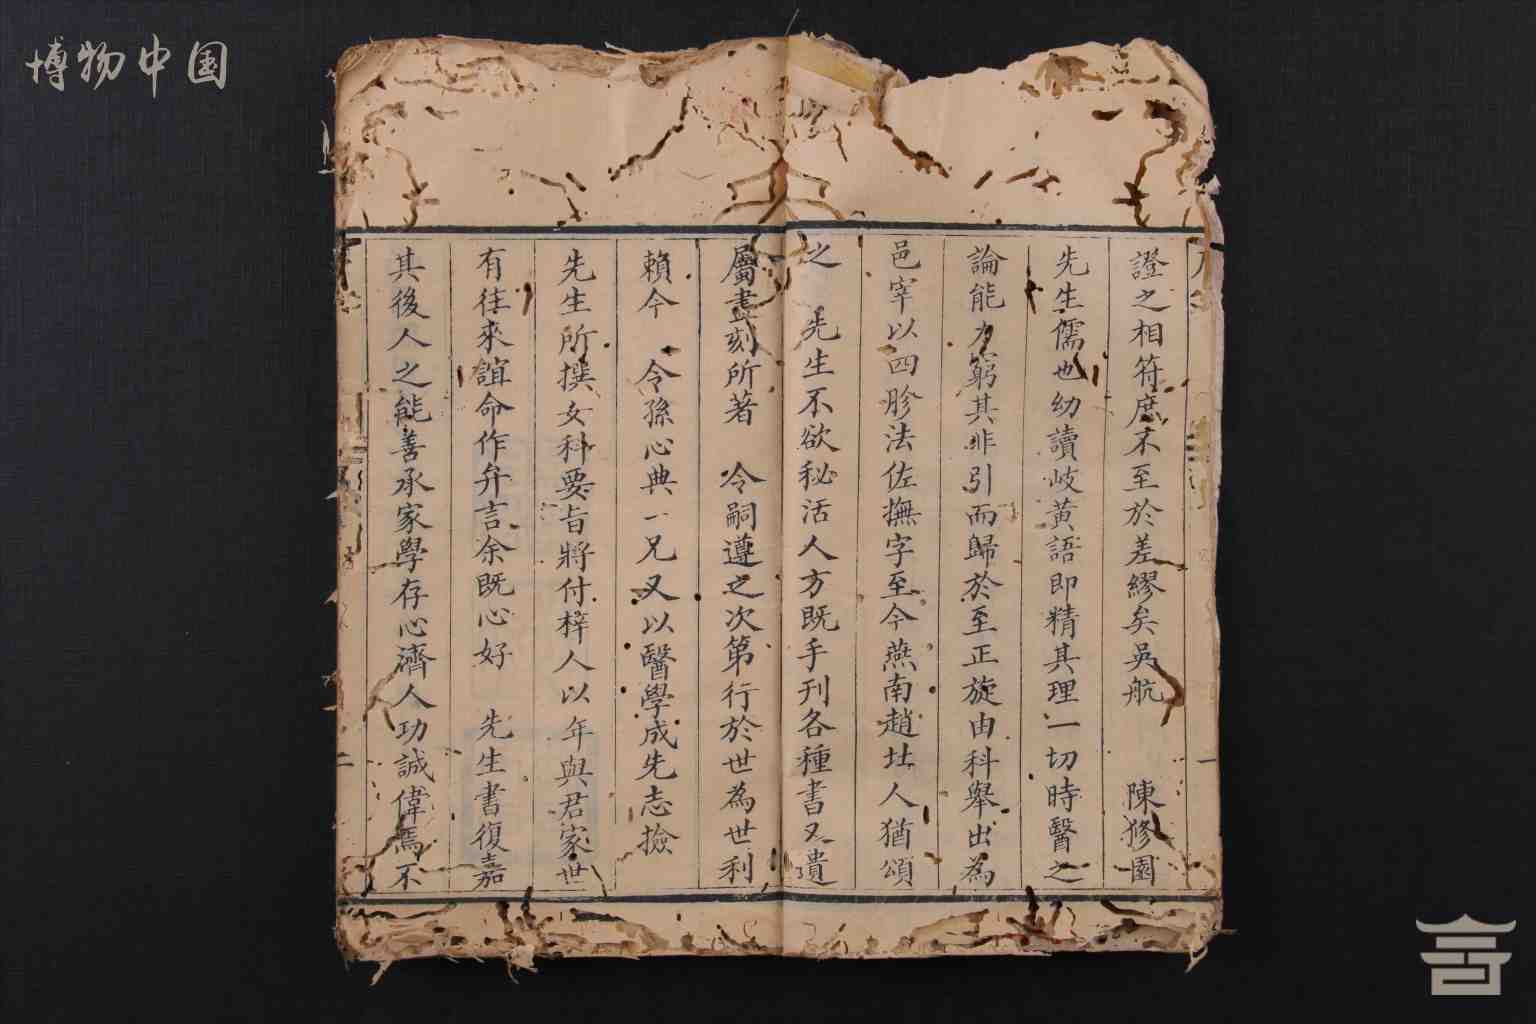 博物中国
證之相符庶不至於差繆矣吳航　陳修園
先生儒也幼讀岐黃語即精其理一切時醫之
論能力窮其非引而歸於至正旋由科舉出為
邑宰以四胗法佐撫字至今燕南趙北人猶頌
之　先生不欲秘活人方既手刊各種書又遺
屬盡刻所著　令嗣遵之次第行於世為世利
賴今　令孫心典一兄又以醫學成先志撿
先生所撰女科要旨將付梓人以年與君家世
有往來誼命作弁言余既心好　先生書復嘉
其後人之能善承家學存心濟人功誠偉焉不
一
二